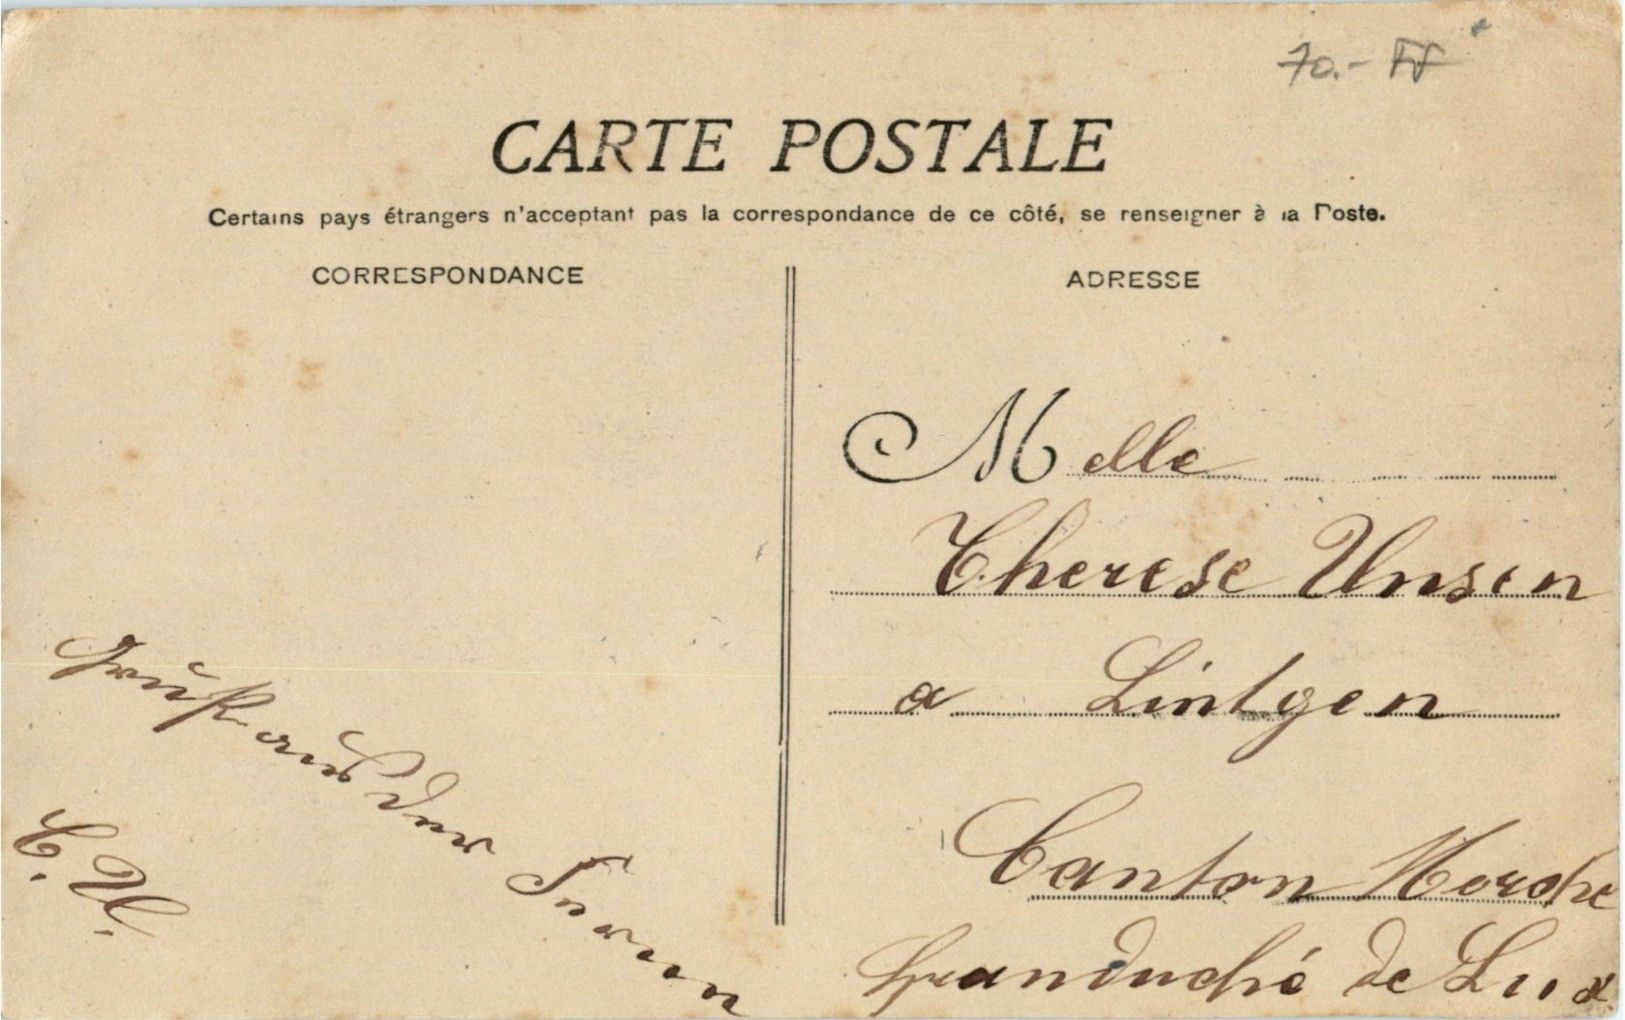 70.- FF
CARTE POSTALE
Certains pays étrangers n'acceptant pas la correspondance de ce côté, se renseigner à la Poste.
CORRESPONDANCE
ADRESSE
Melle
Therese Unsen
a Lintgen
Canton Mersch
Granduché de Lux
Gruß aus der Ferne
C. U.